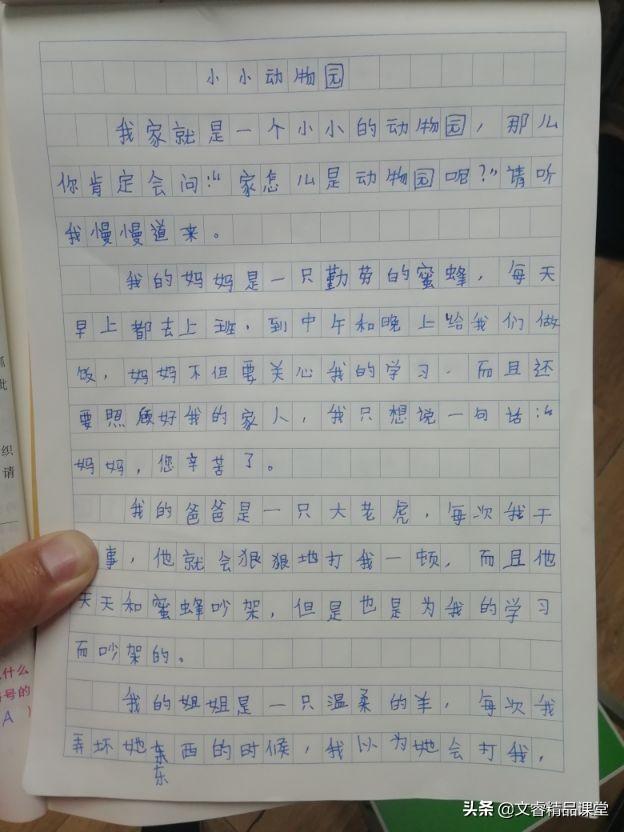 小小动物园
我家就是一个小小的动物园，那么
你肯定会问：“家怎么是动物园呢？”请听
我慢慢道来。
我的妈妈是一只勤劳的蜜蜂，每天
早上都去上班，到中午和晚上给我们做
饭，妈妈不但要关心我的学习，而且还
要照顾好我的家人，我只想说一句话：“
妈妈，您辛苦了。
我的爸爸是一只大老虎，每次我干
事，他就会狠狠地打我一顿，而且他
天天和蜜蜂吵架，但是也是为我的学习
而吵架的。
我的姐姐是一只温柔的羊，每次我
弄坏她东西的时候，我以为她会打我，
东
批
织
请
什么
号的
A
头条 @文睿精品课堂